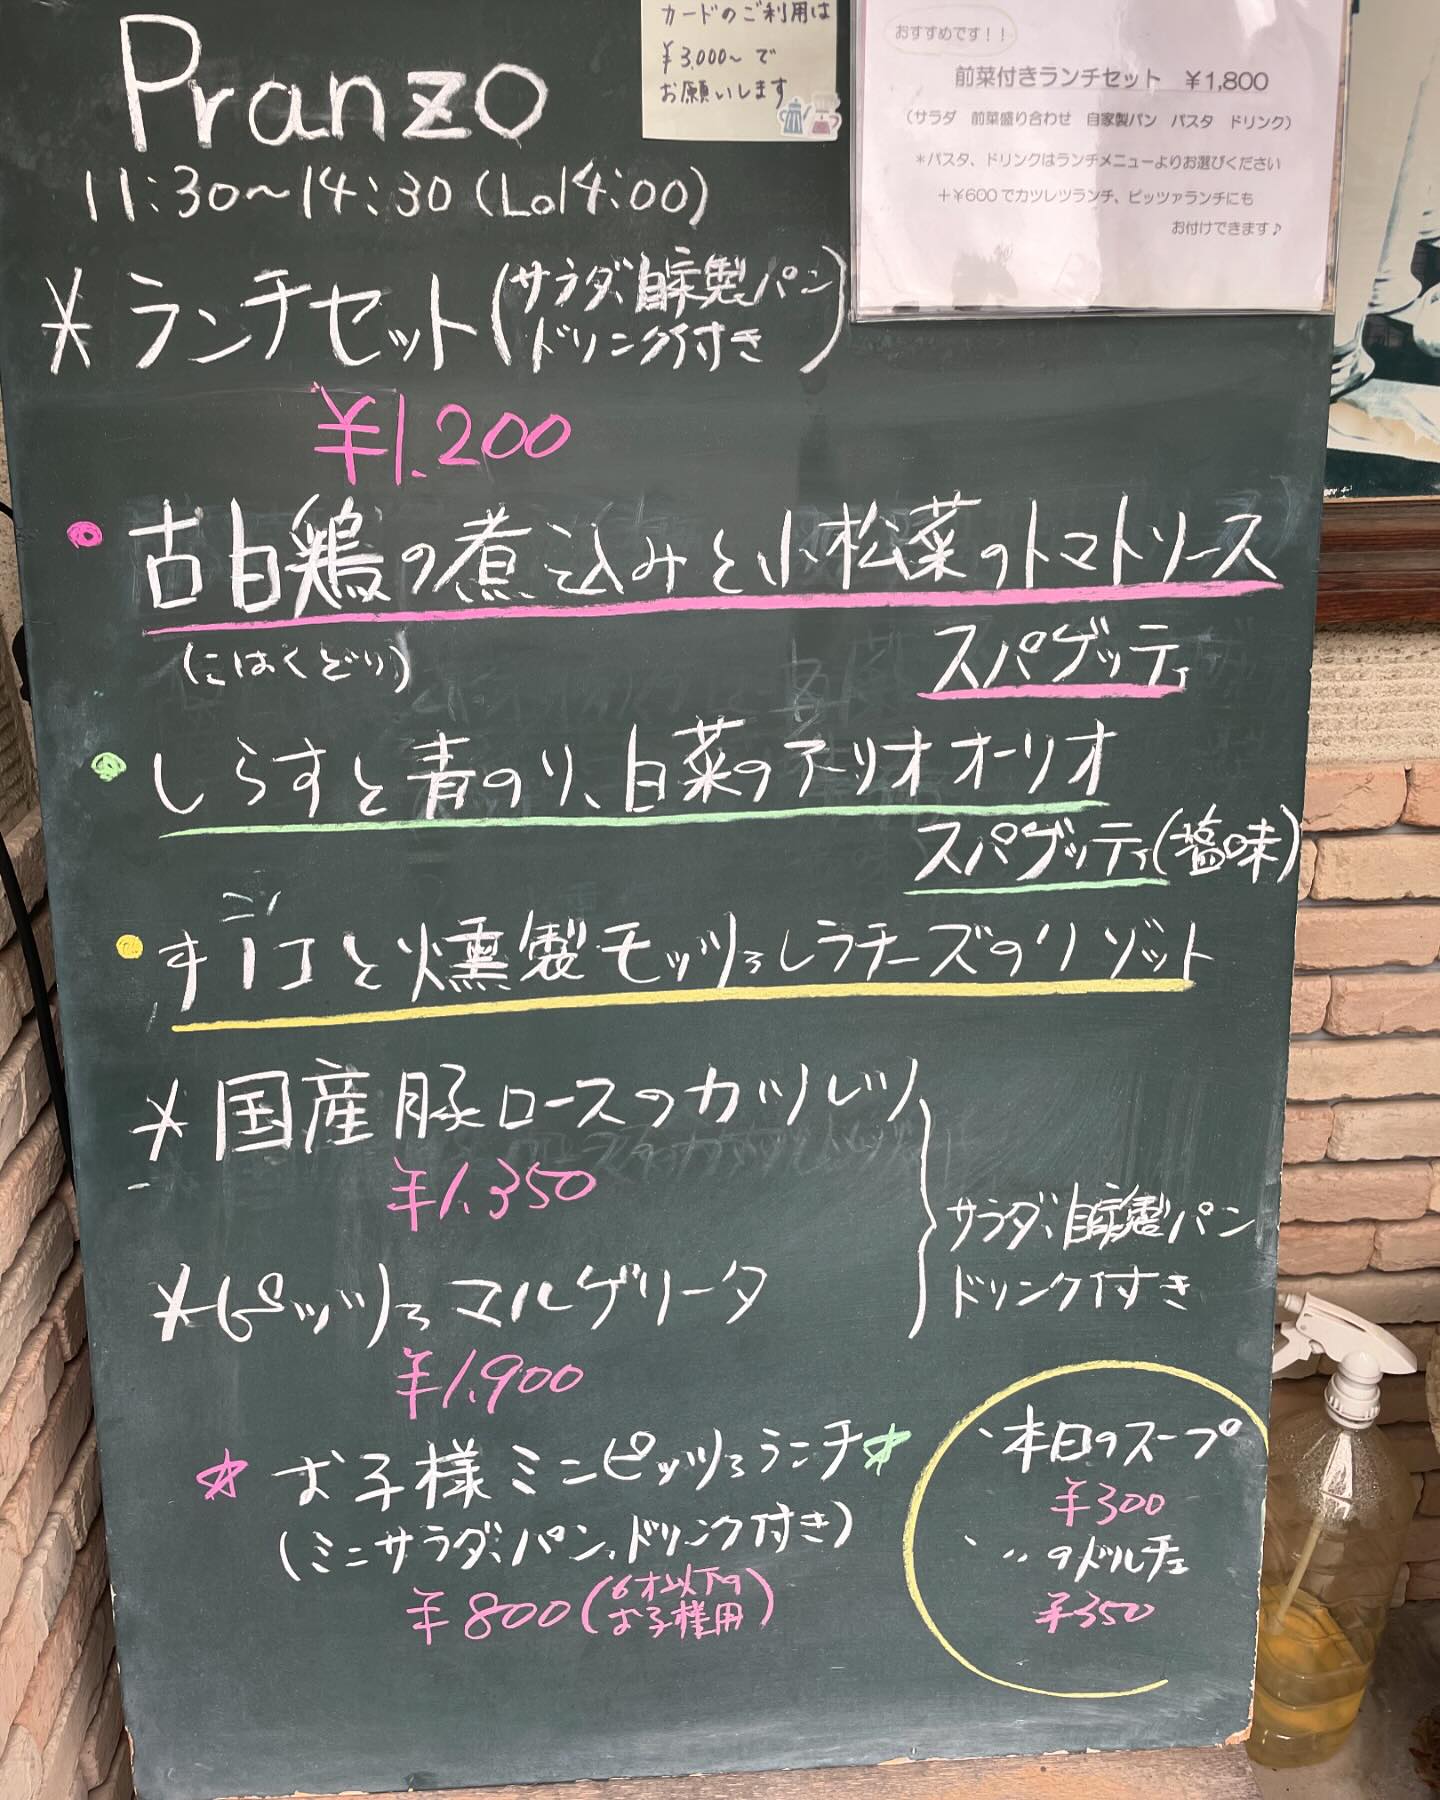 Pranzo
11:30～14:30(Lo14:00)
カードのご利用は
¥3,000～で
お願いします
おすすめです！！
前菜付きランチセット ¥1,800
(サラダ 前菜盛り合わせ 自家製パン パスタ ドリンク)
＊パスタ、ドリンクはランチメニューよりお選びください
＋¥600でカツレツランチ、ピッツァランチにも
お付けできます♪
＊ランチセット(サラダ、自家製パン
ドリンク付き)
¥1.200
・古白鶏の煮込みと小松菜のトマトソース
(こはくどり)
スパゲッティ
・しらすと青のり、白菜のアーリオオーリオ
スパゲッティ(醤味)
・キノコと燻製モッツァレラチーズのリゾット
＊国産豚ロースのカツレツ
¥1.350
＊ピッツァマルゲリータ
¥1.900
サラダ、自家製パン
ドリンク付き
☆お子様ミニピッツァランチ☆
(ミニサラダ、パン、ドリンク付き)
¥800(6才以下の
お子様用)
、本日のスープ
¥300
、〃のドルチェ
¥350